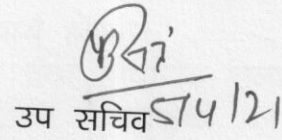 उप सचिव 5/4/21